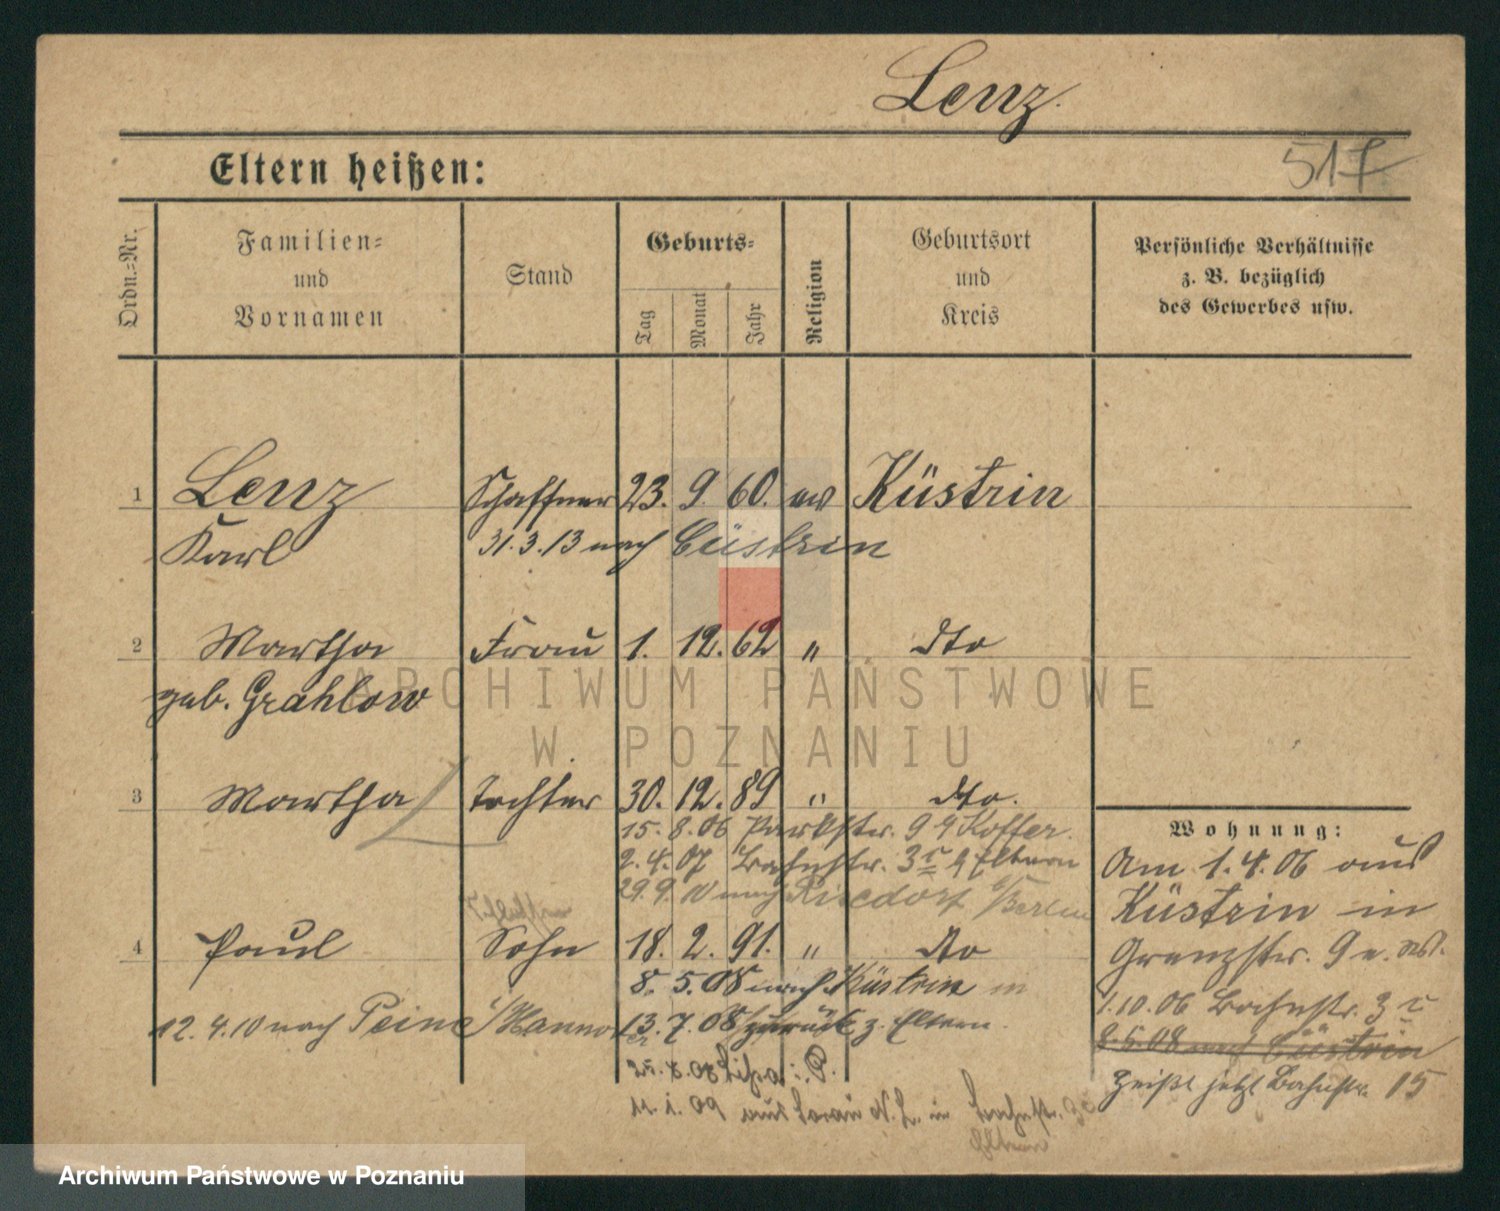 Lenz
517
Eltern heißen:
Ordn.=Nr.
Familien= und Vornamen
Stand
Geburts=
Tag
Monat
Jahr
Religion
Geburtsort und Kreis
Persönliche Verhältnisse z. B. bezüglich des Gewerbes usw.
1 Lenz Schaffner 23. 9. 60. ev Küstrin
Karl 31.3.13 nach Cüstrin
2 Martha Frau 1. 12. 62 " dto
geb. Grahlow
ARCHIWUM PAŃSTWOWE
W POZNANIU
3 Martha Tochter 30. 12. 89 " dto.
15. 8. 06 Parkstr. 9 Koffer.
2. 4. 07 Bahnstr. 3 Eltern
29. 9. 10 nach Rixdorf b/Berlin
4 Paul Sohn 18. 2. 91. " dto
8. 5. 08 nach Küstrin
12. 4. 10 nach Peine /Hannover 13. 7. 08 zurück z. Eltern.
20. 7. 08 Lissa i. P.
11. 1. 09 aus Sorau N. L. in Bahnstr. 3
Eltern
Wohnung:
Am 1. 4. 06 aus
Küstrin in
Grenzstr. 9
1. 10. 06 Bahnstr. 3
8. 5. 08 nach Cüstrin
heißt jetzt Bahnstr. 15
Archiwum Państwowe w Poznaniu